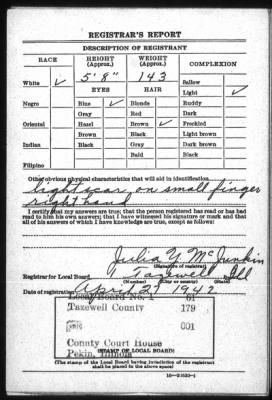 REGISTRAR'S REPORT
DESCRIPTION OF REGISTRANT
RACE HEIGHT (Approx.) WEIGHT (Approx.) COMPLEXION
White ✓ 5' 8" 143 Sallow
EYES HAIR Light ✓
Negro Blue ✓ Blonde Ruddy
Gray Red Dark
Oriental Hazel Brown ✓ Freckled
Brown Black Light brown
Indian Black Gray Dark brown
Bald Black
Filipino
Other obvious physical characteristics that will aid in identification
light scar on small finger
right hand
I certify that my answers are true; that the person registered has read or has had
read to him his own answers; that I have witnessed his signature or mark and that
all of his answers of which I have knowledge are true, except as follows:
Julia Y. McJunkin
(Signature of registrar)
Registrar for Local Board Tazewell Ill
(Number) (City or county) (State)
Date of registration April 27 1942
Local Board No. 1 61
Tazewell County 179
001
County Court House
Pekin, Illinois
(STAMP OF LOCAL BOARD)
(The stamp of the Local Board having jurisdiction of the registrant
shall be placed in the above space)